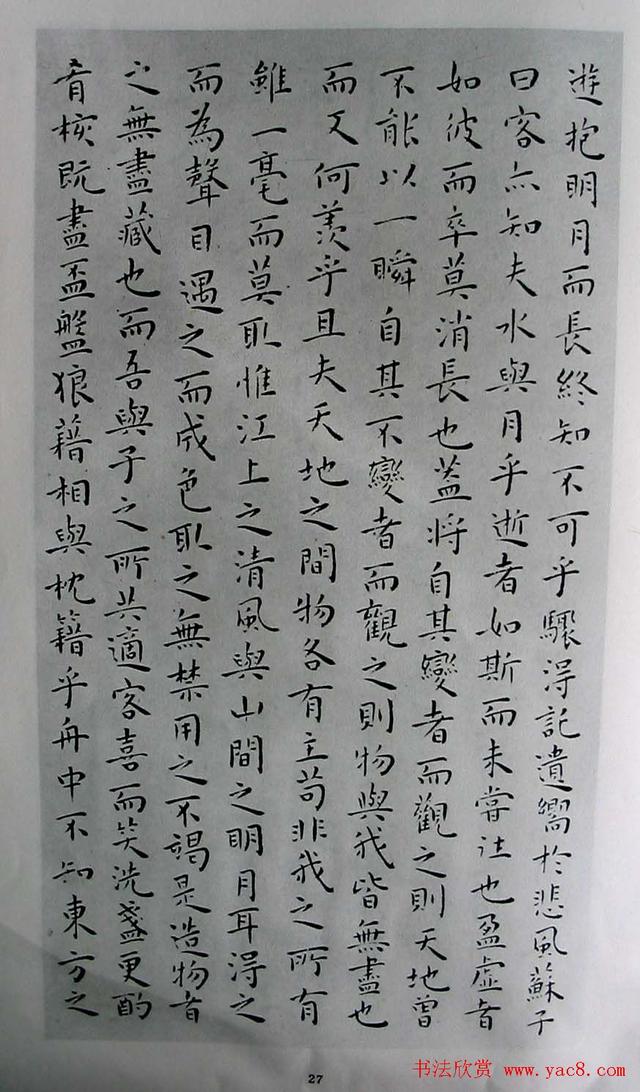 遊抱明月而長終知不可乎驟得記遺嚮於悲風蘇子
曰客亦知夫水與月乎逝者如斯而未嘗往也盈虛者
如彼而卒莫消長也蓋將自其變者而觀之則天地曾
不能以一瞬自其不變者而觀之則物與我皆無盡也
而又何羨乎且夫天地之間物各有主苟非我之所有
雖一毫而莫取惟江上之清風與山間之明月耳得之
而為聲目遇之而成色取之無禁用之不竭是造物者
之無盡藏也而吾與子之所共適客喜而笑洗盞更酌
肴核既盡盃盤狼藉相與枕籍乎舟中不知東方之
27
书法欣赏 www.yac8.com